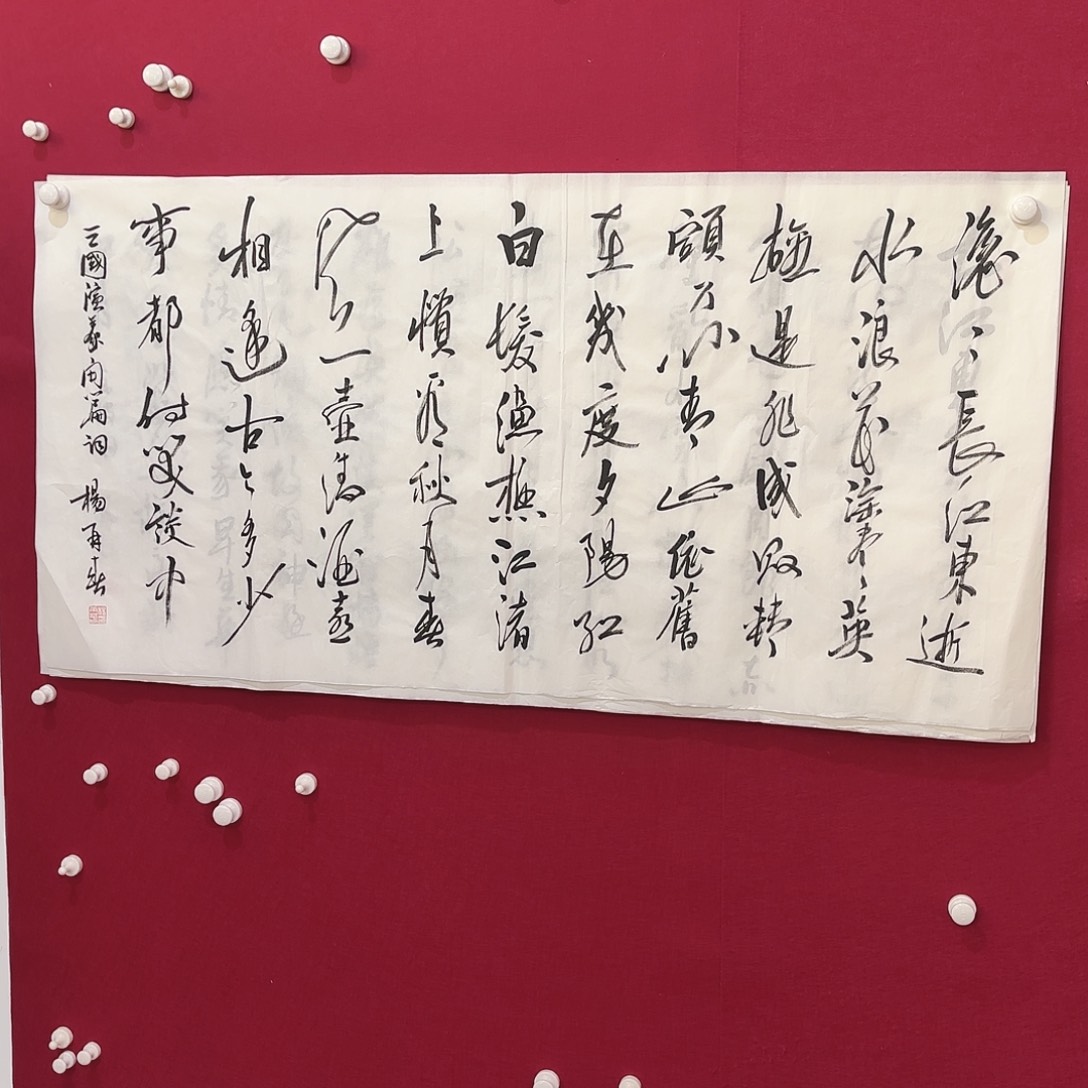 滚〻長江東逝
水浪花淘盡英
雄是非成敗轉
頭空青山依舊
在幾度夕陽紅
白髮漁樵江渚
上慣看秋月春
風一壺濁酒喜
相逢古今多少
事都付笑談中
三國演義開篇詞 楊再春